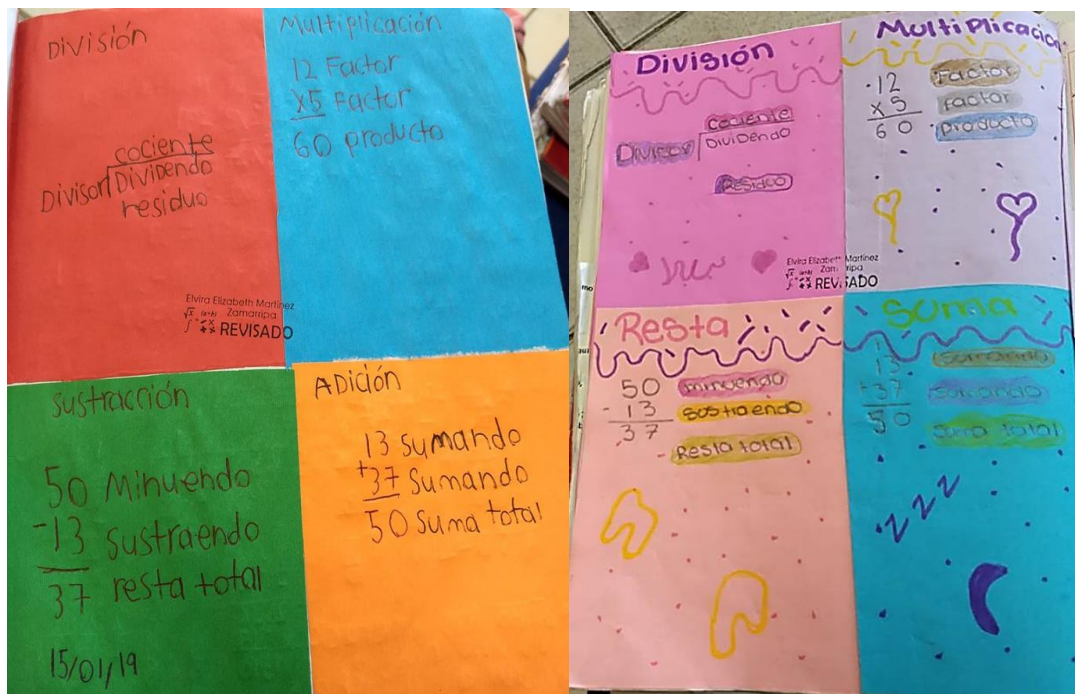 División
cociente
Divisor Dividendo
residuo
Elvira Elizabeth Martínez
Zamarripa
REVISADO
Multiplicación
12 Factor
x5 Factor
60 producto
Sustracción
50 Minuendo
-13 sustraendo
37 resta total
15/01/19
ADición
13 sumando
+37 Sumando
50 Suma total
División
cociente
Divisor DiviDenDo
Residuo
Multiplicación
12 Factor
x5 Factor
60 producto
Elvira Elizabeth Martínez
Zamarripa
REVISADO
Resta
50 minuendo
-13 sustraendo
37 Resta total
Suma
1
13 sumando
+37 sumando
50 suma total
zzz